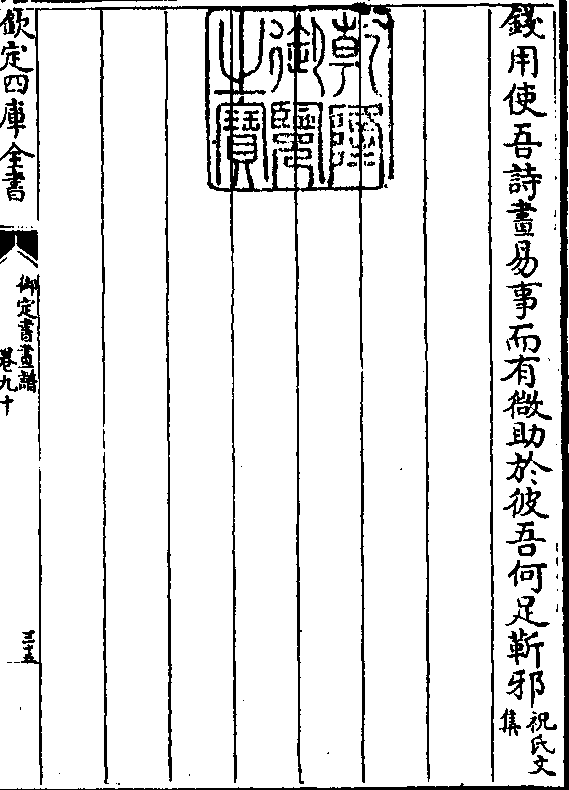 錢用使吾詩畫易事而有微助於彼吾何足靳邪祝氏文集
乾隆御覽之寶
欽定四庫全書
御定書畫譜
卷九十
三十五